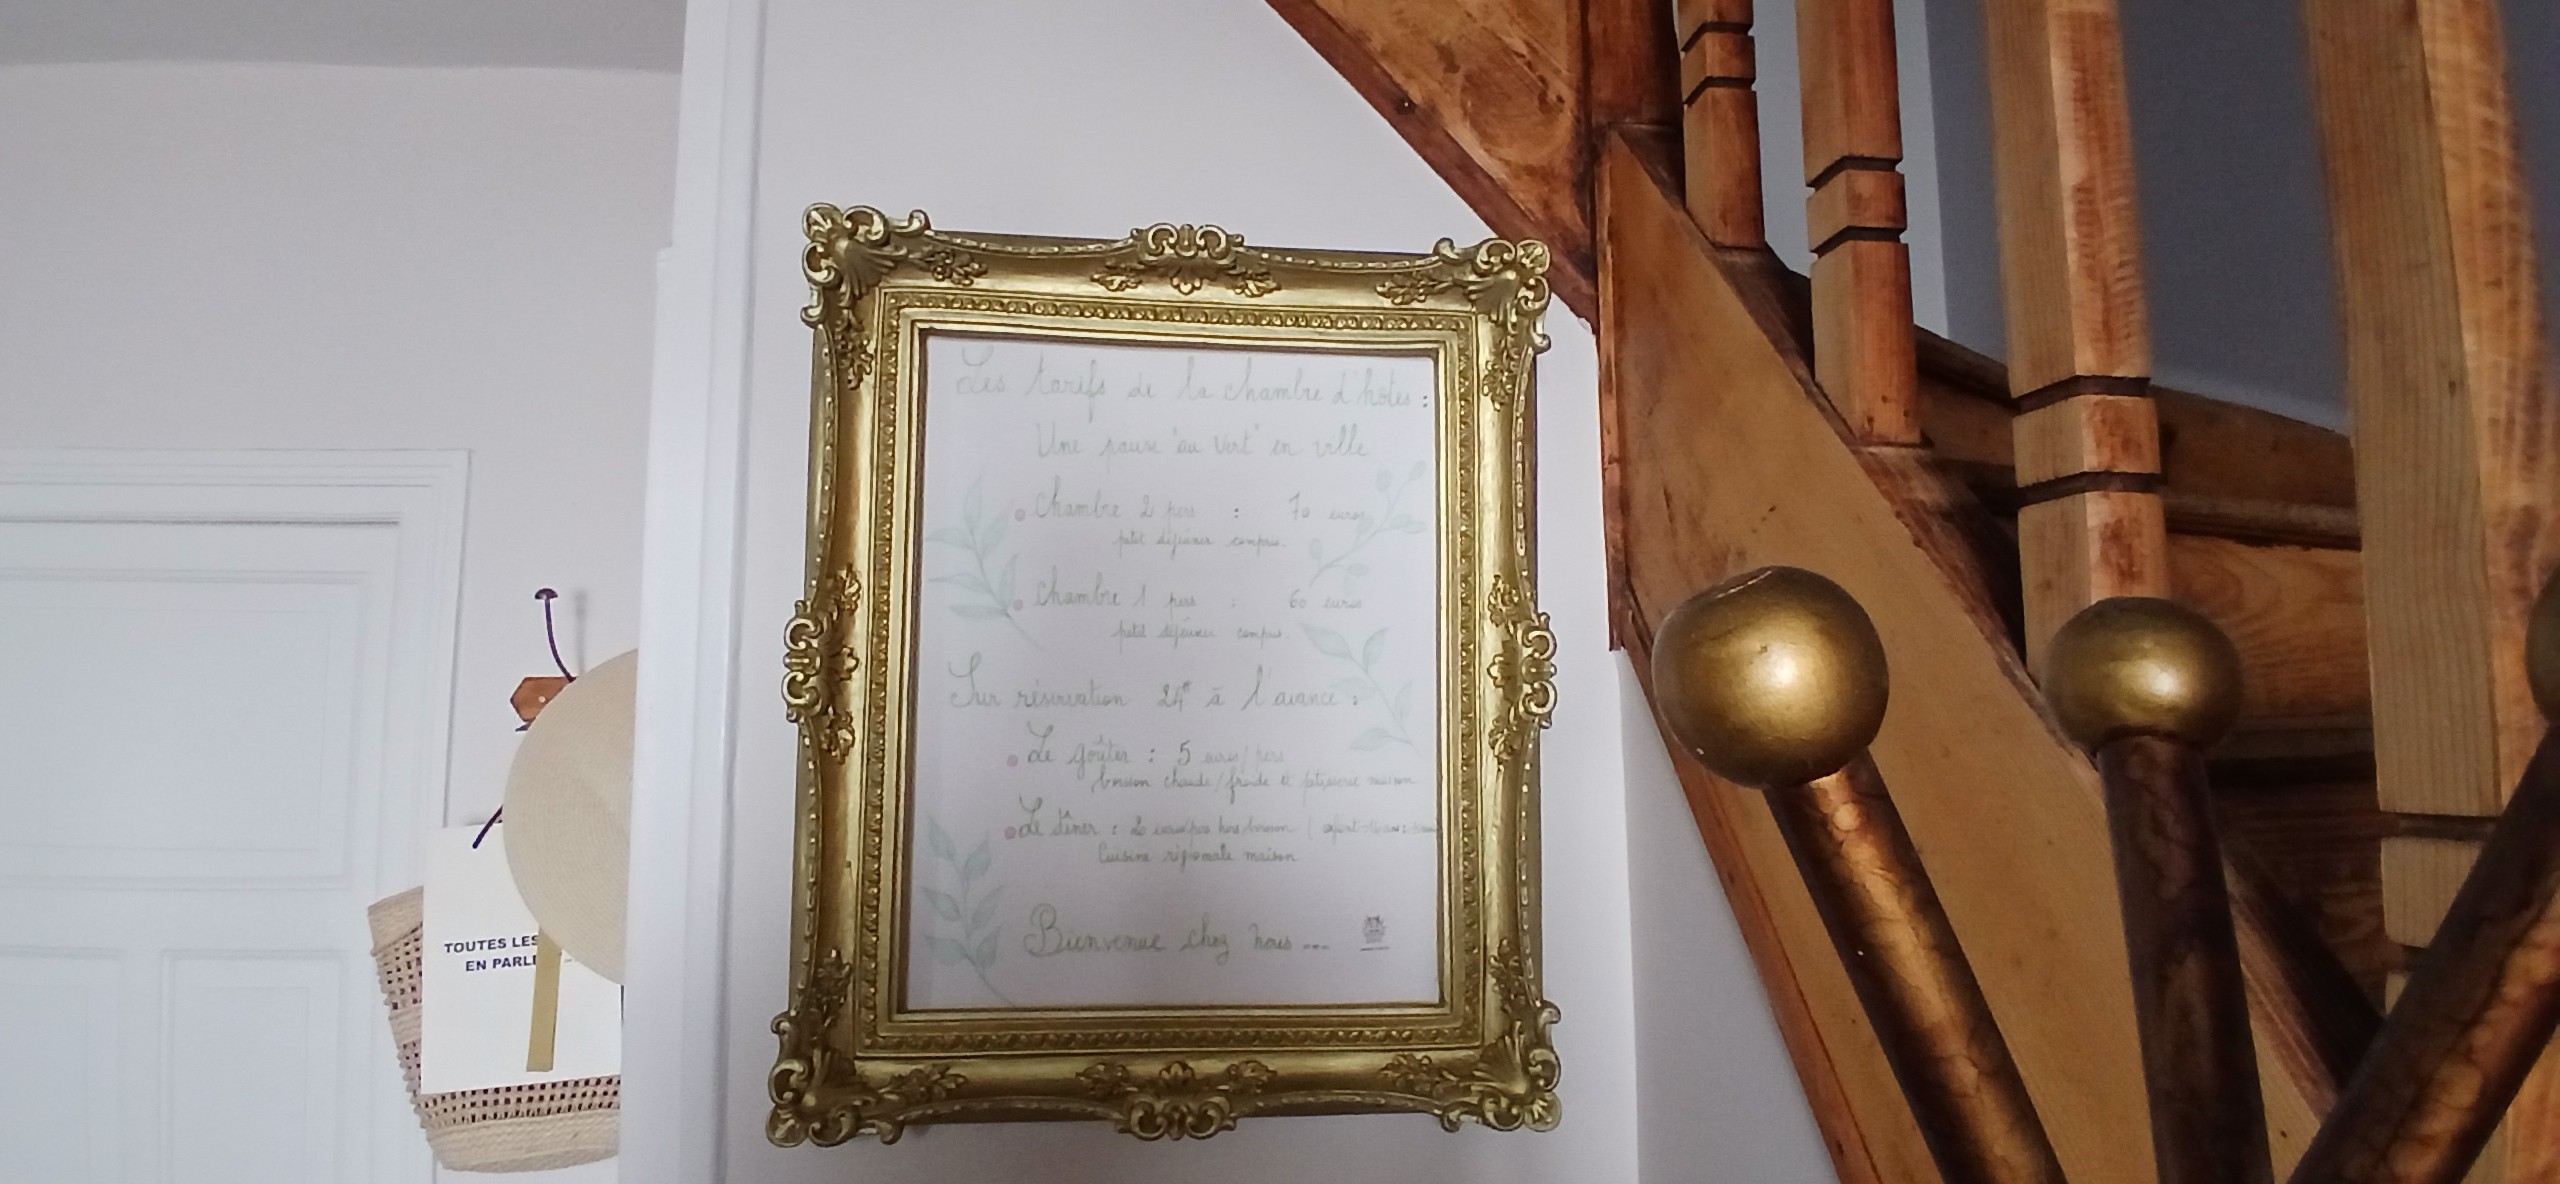 Les tarifs de la chambre d'hôtes :
Une pause 'au vert' en ville
Chambre 2 pers : 70 euros
petit déjeuner compris.
Chambre 1 pers : 60 euros
petit déjeuner compris.
Sur réservation 24h à l'avance :
Le goûter : 5 euros/pers
boisson chaude/froide et patisserie maison
Le dîner : 20 euros/pers hors boisson (
Cuisine régionale maison
Bienvenue chez nous ...
TOUTES LES
EN PARL